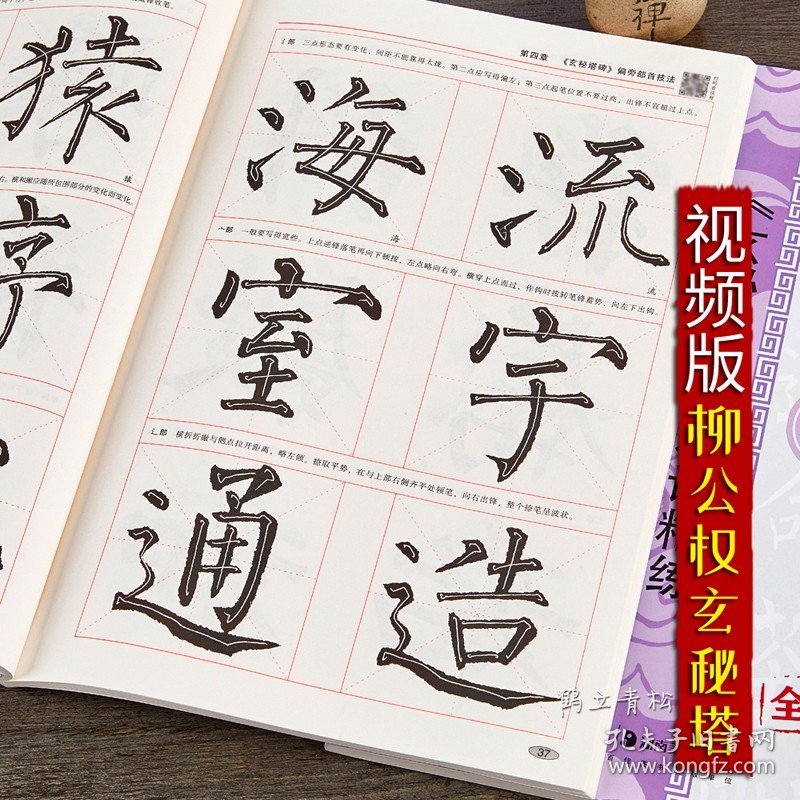 禅
第四章 《玄秘塔碑》偏旁部首技法
氵部 三点形态要有变化，间距不能靠得太拢。第二点应写得偏左；第三点起笔位置不要过高，出锋不宜超过上点。
海 流
海
流
宀部 一般要写得宽些。上点逆锋落笔再向下顿按，左点略向右弯。横穿上点而过，作钩时按转笔锋蓄势，向左下出钩。
室 字
辶部 横折折撇与侧点拉开距离，略左倾。捺取平势，在与上部右侧齐平处顿笔，向右出锋，整个捺笔呈波状。
通 造
37
猿
猿
右。横和撇应随所包围部分的变化而变化。
亭
视频版
柳公权玄秘塔
精练
全
鹤立青松
孔夫子旧书网
www.kongfz.com